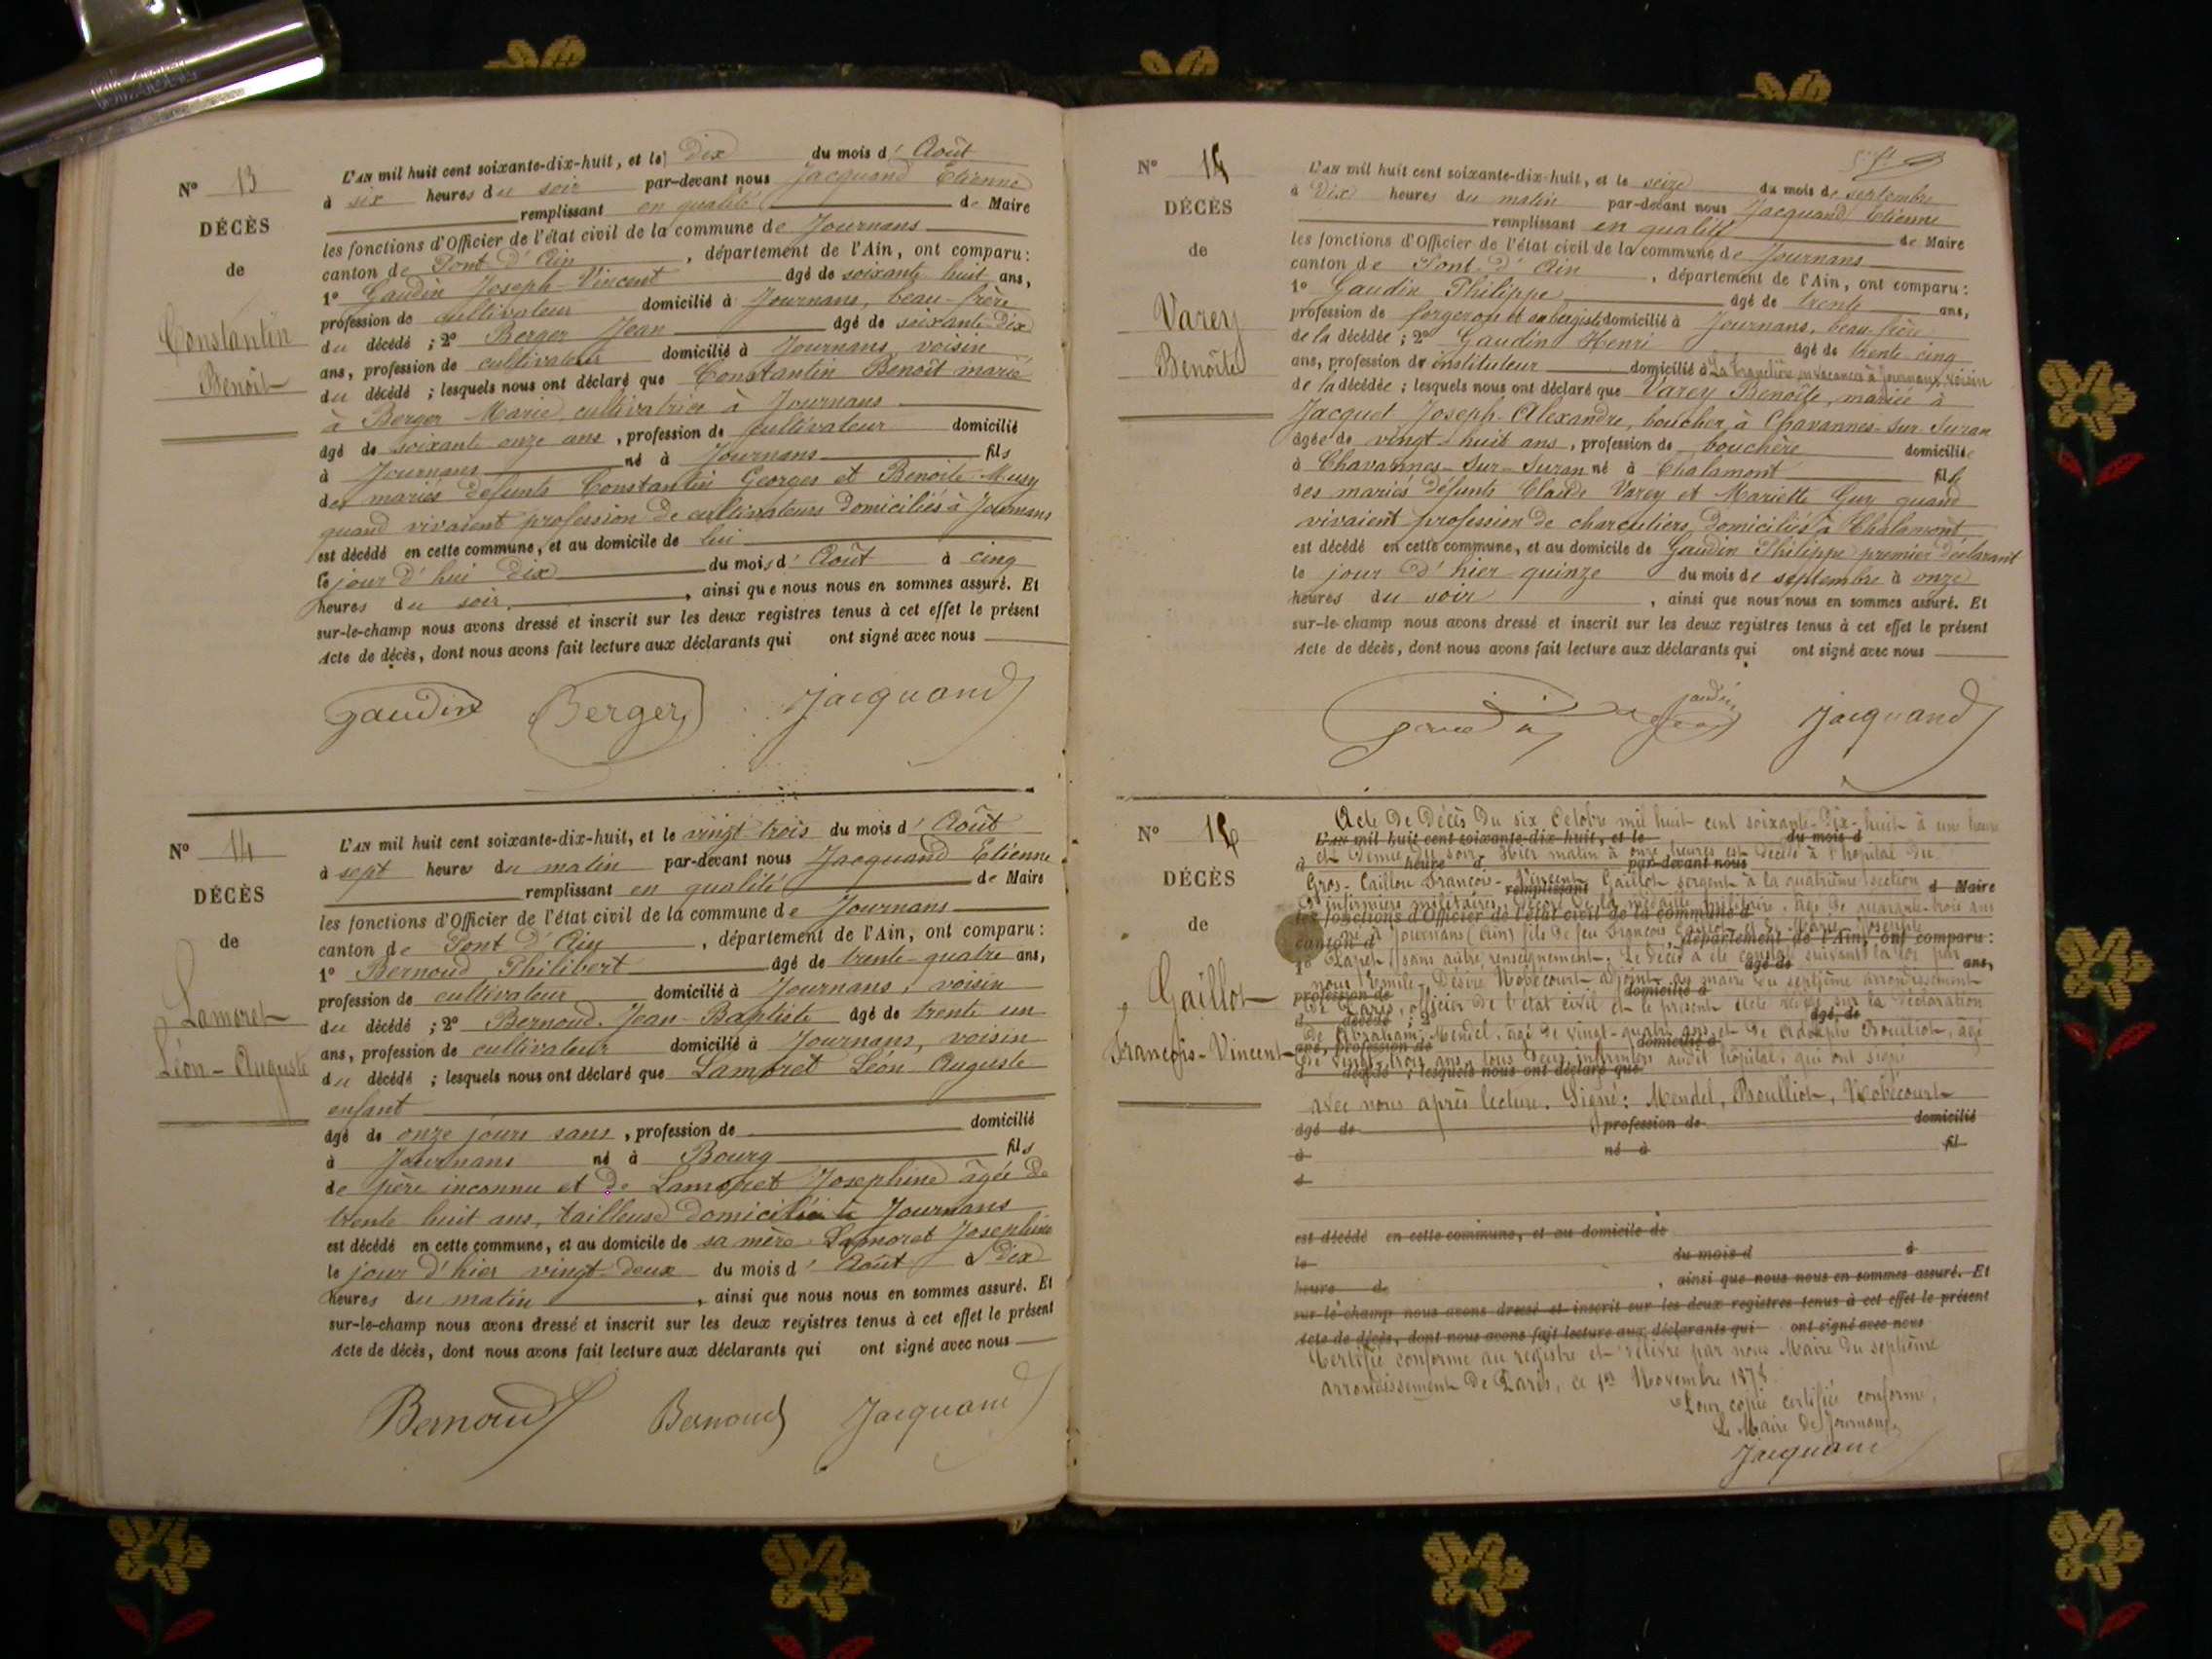 N° 13
DÉCÈS
de
Constantin
Benoit
L'AN mil huit cent soixante-dix-huit, et le dix du mois d'Août
à six heures du soir par-devant nous Jacquand Etienne
remplissant en qualité de Maire
les fonctions d'Officier de l'état civil de la commune de Journans
canton de Pont d'Ain, département de l'Ain, ont comparu :
1° Gaudin Joseph-Vincent âgé de soixante huit ans,
profession de cultivateur domicilié à Journans, beau-frère
du décédé ; 2° Berger Jean âgé de soixante-dix
ans, profession de cultivateur domicilié à Journans, voisin
du décédé ; lesquels nous ont déclaré que Constantin Benoit marié
à Berger Marie, cultivatrice à Journans
âgé de soixante onze ans, profession de cultivateur domicilié
à Journans né à Journans fils
des mariés défunts Constantin Georges et Benoîte Musy
quand vivaient profession de cultivateurs domiciliés à Journans
est décédé en cette commune, et au domicile de lui
le jour d'hui dix du mois d'Août à cinq
heures du soir, ainsi que nous nous en sommes assuré. Et
sur-le-champ nous avons dressé et inscrit sur les deux registres tenus à cet effet le présent
Acte de décès, dont nous avons fait lecture aux déclarants qui ont signé avec nous
gaudin Berger Jacquand
N° 14
DÉCÈS
de
Lamoret
Léon-Auguste
L'AN mil huit cent soixante-dix-huit, et le vingt trois du mois d'Août
à sept heures du matin par-devant nous Jacquand Etienne
remplissant en qualité de Maire
les fonctions d'Officier de l'état civil de la commune de Journans
canton de Pont d'Ain, département de l'Ain, ont comparu :
1° Bernoud Philibert âgé de trente-quatre ans,
profession de cultivateur domicilié à Journans, voisin
du décédé ; 2° Bernoud Jean-Baptiste âgé de trente un
ans, profession de cultivateur domicilié à Journans, voisin
du décédé ; lesquels nous ont déclaré que Lamoret Léon Auguste
enfant
âgé de onze jours sans, profession de domicilié
à Journans né à Bourg fils
de père inconnu et de Lamoret Josephine âgée de
trente huit ans, tailleuse domiciliée à Journans
est décédé en cette commune, et au domicile de sa mère Lamoret Josephine
le jour d'hier vingt-deux du mois d'Août à dix
heures du matin, ainsi que nous nous en sommes assuré. Et
sur-le-champ nous avons dressé et inscrit sur les deux registres tenus à cet effet le présent
Acte de décès, dont nous avons fait lecture aux déclarants qui ont signé avec nous
Bernoud Bernoud Jacquand
N° 15
DÉCÈS
de
Varey
Benoîte
L'AN mil huit cent soixante-dix-huit, et le seize du mois de septembre
à Dix heures du matin par-devant nous Jacquand Etienne
remplissant en qualité de Maire
les fonctions d'Officier de l'état civil de la commune de Journans
canton de Pont d'Ain, département de l'Ain, ont comparu :
1° Gaudin Philippe âgé de trente ans,
profession de forgeron et aubergiste domicilié à Journans, beau frère
de la décédée ; 2° Gaudin Henri âgé de trente cinq
ans, profession de instituteur domicilié à La Tranclière en vacances à Journans, voisin
de la décédée ; lesquels nous ont déclaré que Varey Benoîte, mariée à
Jacquet Joseph-Alexandre, boucher à Chavannes-sur-Suran
âgée de vingt-huit ans, profession de bouchère domiciliée
à Chavannes-sur-Suran né à Chalamont fille
des mariés défunts Claude Varey et Mariette Guy quand
vivaient profession de charcutiers domiciliés à Chalamont
est décédé en cette commune, et au domicile de Gaudin Philippe premier déclarant
le jour d'hier quinze du mois de septembre à onze
heures du soir, ainsi que nous nous en sommes assuré. Et
sur-le-champ nous avons dressé et inscrit sur les deux registres tenus à cet effet le présent
Acte de décès, dont nous avons fait lecture aux déclarants qui ont signé avec nous
gaudin gaudin Jacquand
N° 16
DÉCÈS
de
Gaillot
François-Vincent
Acte de Décès du six Octobre mil huit cent soixante-Dix-huit à une heure
L'AN mil huit cent soixante-dix-huit, et le du mois d
et Demie du soir. Hier matin à onze heures est décédé à l'hôpital du
à heure d par-devant nous
Gros-Caillou François-Vincent Gaillot sergent à la quatrième section
remplissant d Maire
d'infirmiers militaires, décoré de la médaille militaire, âgé de quarante-trois ans
les fonctions d'Officier de l'état civil de la commune d
né à Journans (Ain) fils de feu François Gaillot et de Marie Josephte
canton d département de l'Ain, ont comparu :
sans autre renseignement. Le décès a été constaté suivant la loi par
1° âgé de ans,
nous Romile-Désiré Nobécourt adjoint au maire du septième arrondissement
profession de domicilié à
de Paris, officier de l'état civil et le présent acte rédigé sur la déclaration
d décédé ; 2° âgé de
de Abraham Mendel, âgé de vingt-quatre ans et de Adolphe Boulliot, âgé
ans, profession de domicilié à
de vingt-trois ans, tous deux infirmiers audit hôpital, qui ont signé
d décédé ; lesquels nous ont déclaré que
avec nous après lecture. Signé : Mendel, Boulliot, Nobécourt
âgé de profession de domicilié
à né à fil
d
est décédé en cette commune, et au domicile de
le du mois d à
heure de, ainsi que nous nous en sommes assuré. Et
sur-le-champ nous avons dressé et inscrit sur les deux registres tenus à cet effet le présent
Acte de décès, dont nous avons fait lecture aux déclarants qui ont signé avec nous
Certifié conforme au registre et délivré par nous Maire du septième
arrondissement de Paris, ce 1er Novembre 1878
Pour copie certifiée conforme,
Le Maire de Journans
Jacquand